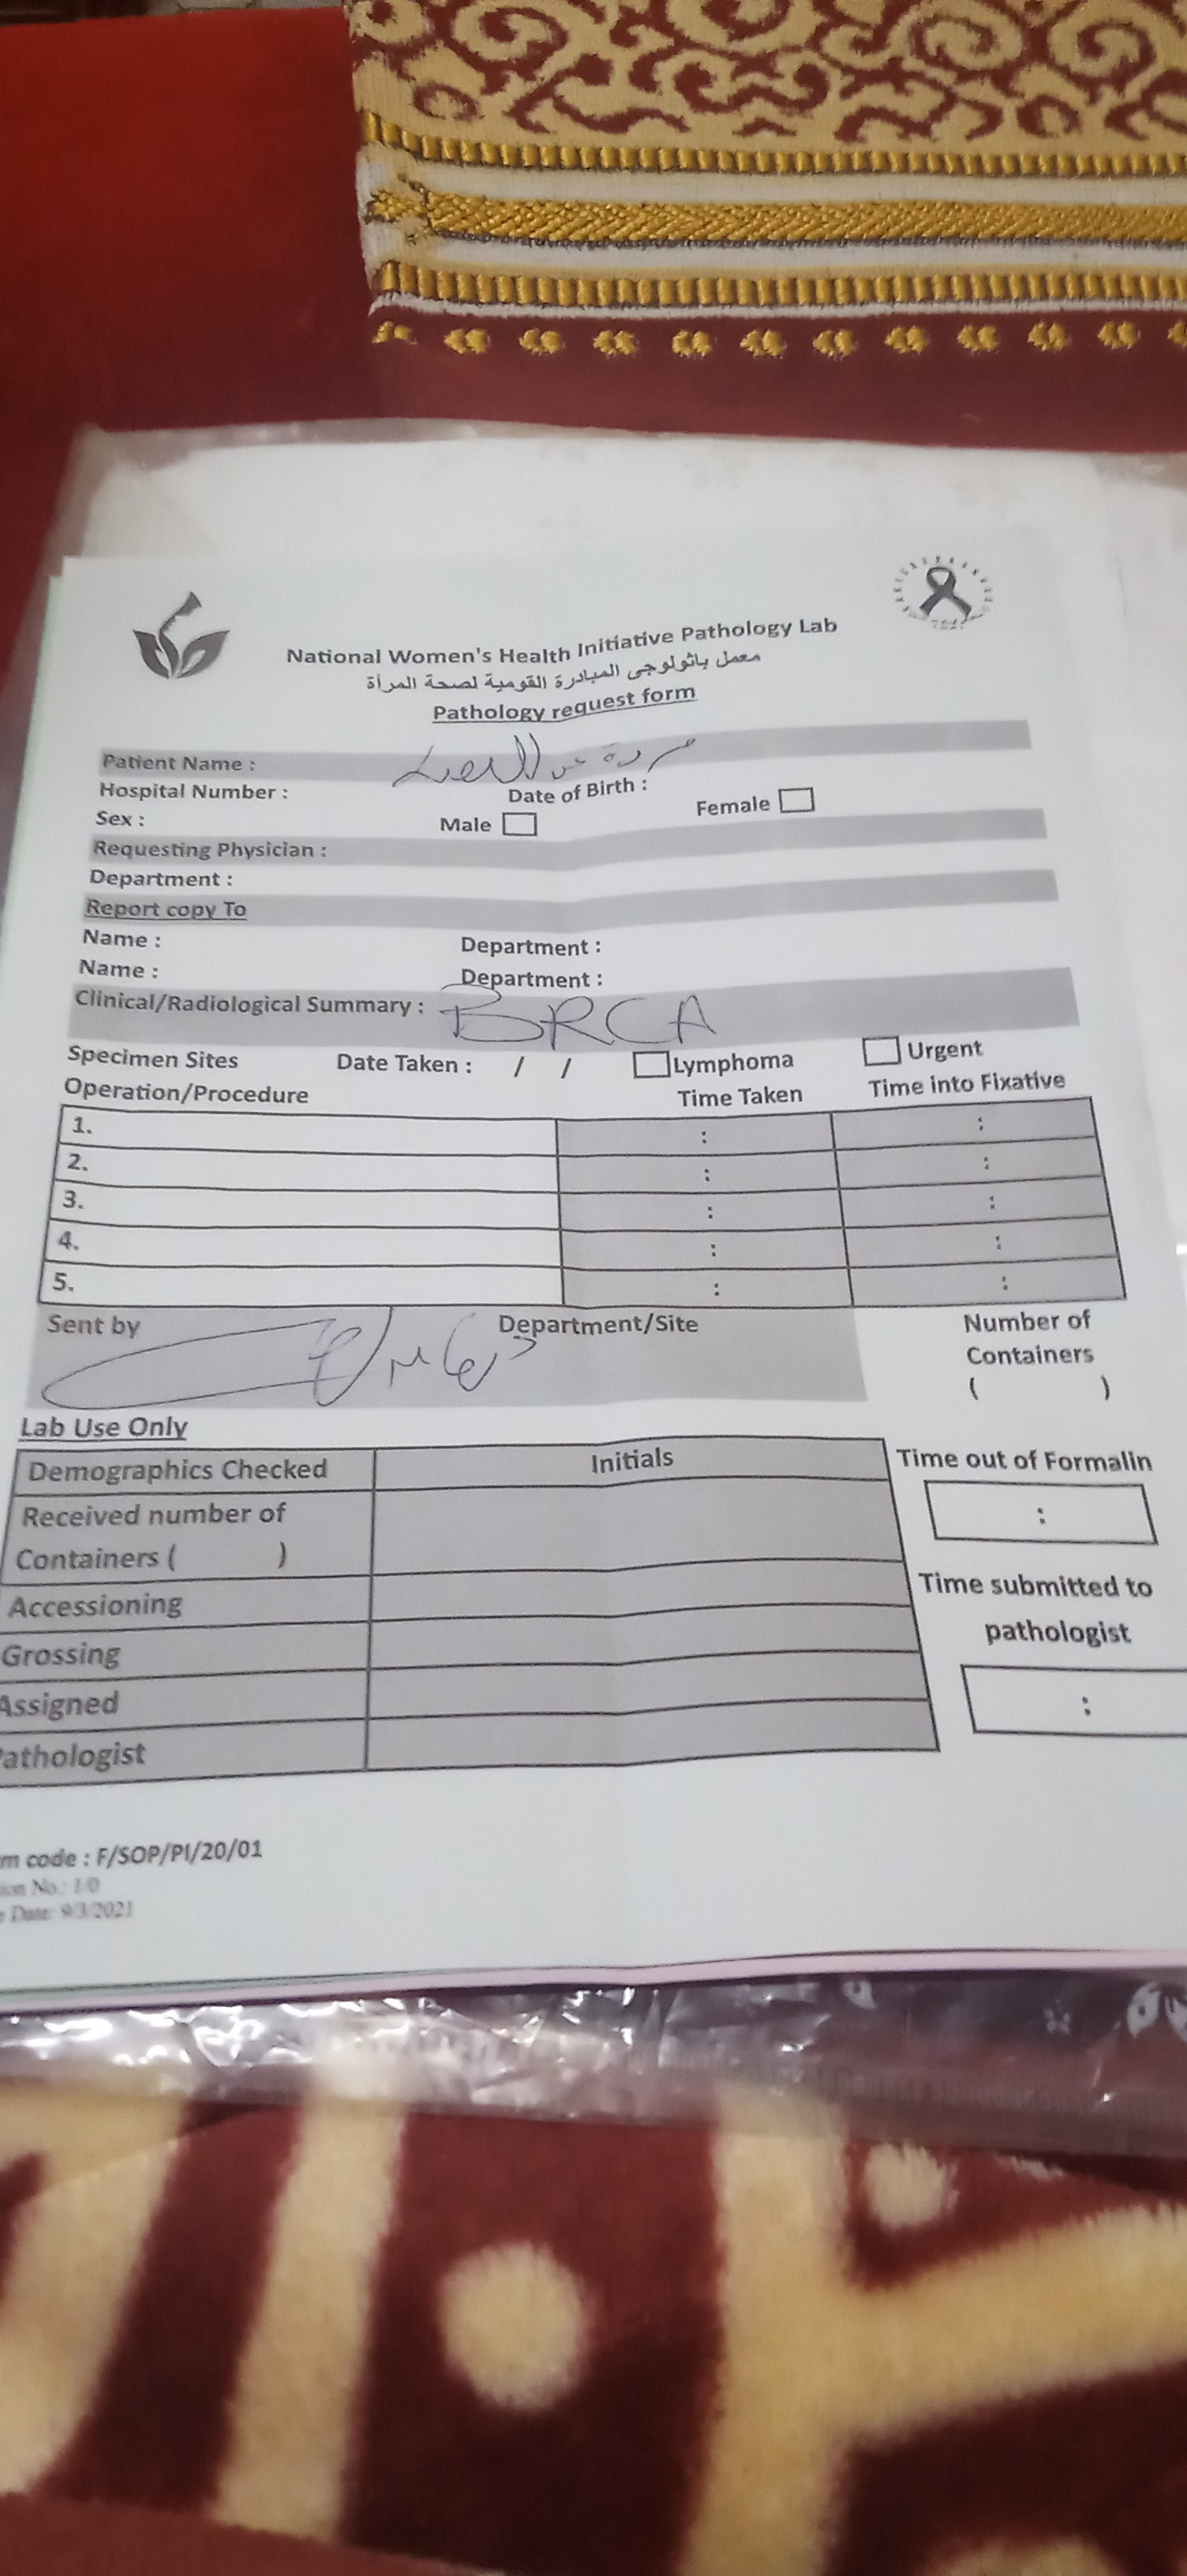 National Women's Health Initiative Pathology Lab
معمل باثولوجى المبادرة القومية لصحة المرأة
Pathology request form
Patient Name :
Hospital Number : Date of Birth :
Sex : Male Female
Requesting Physician :
Department :
Report copy To
Name : Department :
Name : Department :
Clinical/Radiological Summary : BRCA
Specimen Sites Date Taken : / / Lymphoma Urgent
Operation/Procedure Time Taken Time into Fixative
1. : :
2. : :
3. : :
4. : :
5. : :
Sent by Department/Site Number of
Containers
( )
Lab Use Only
Demographics Checked Initials Time out of Formalin
Received number of :
Containers ( )
Accessioning Time submitted to
Grossing pathologist
Assigned :
athologist
m code : F/SOP/PI/20/01
ion No.: 1/0
Date: 9/3/2021